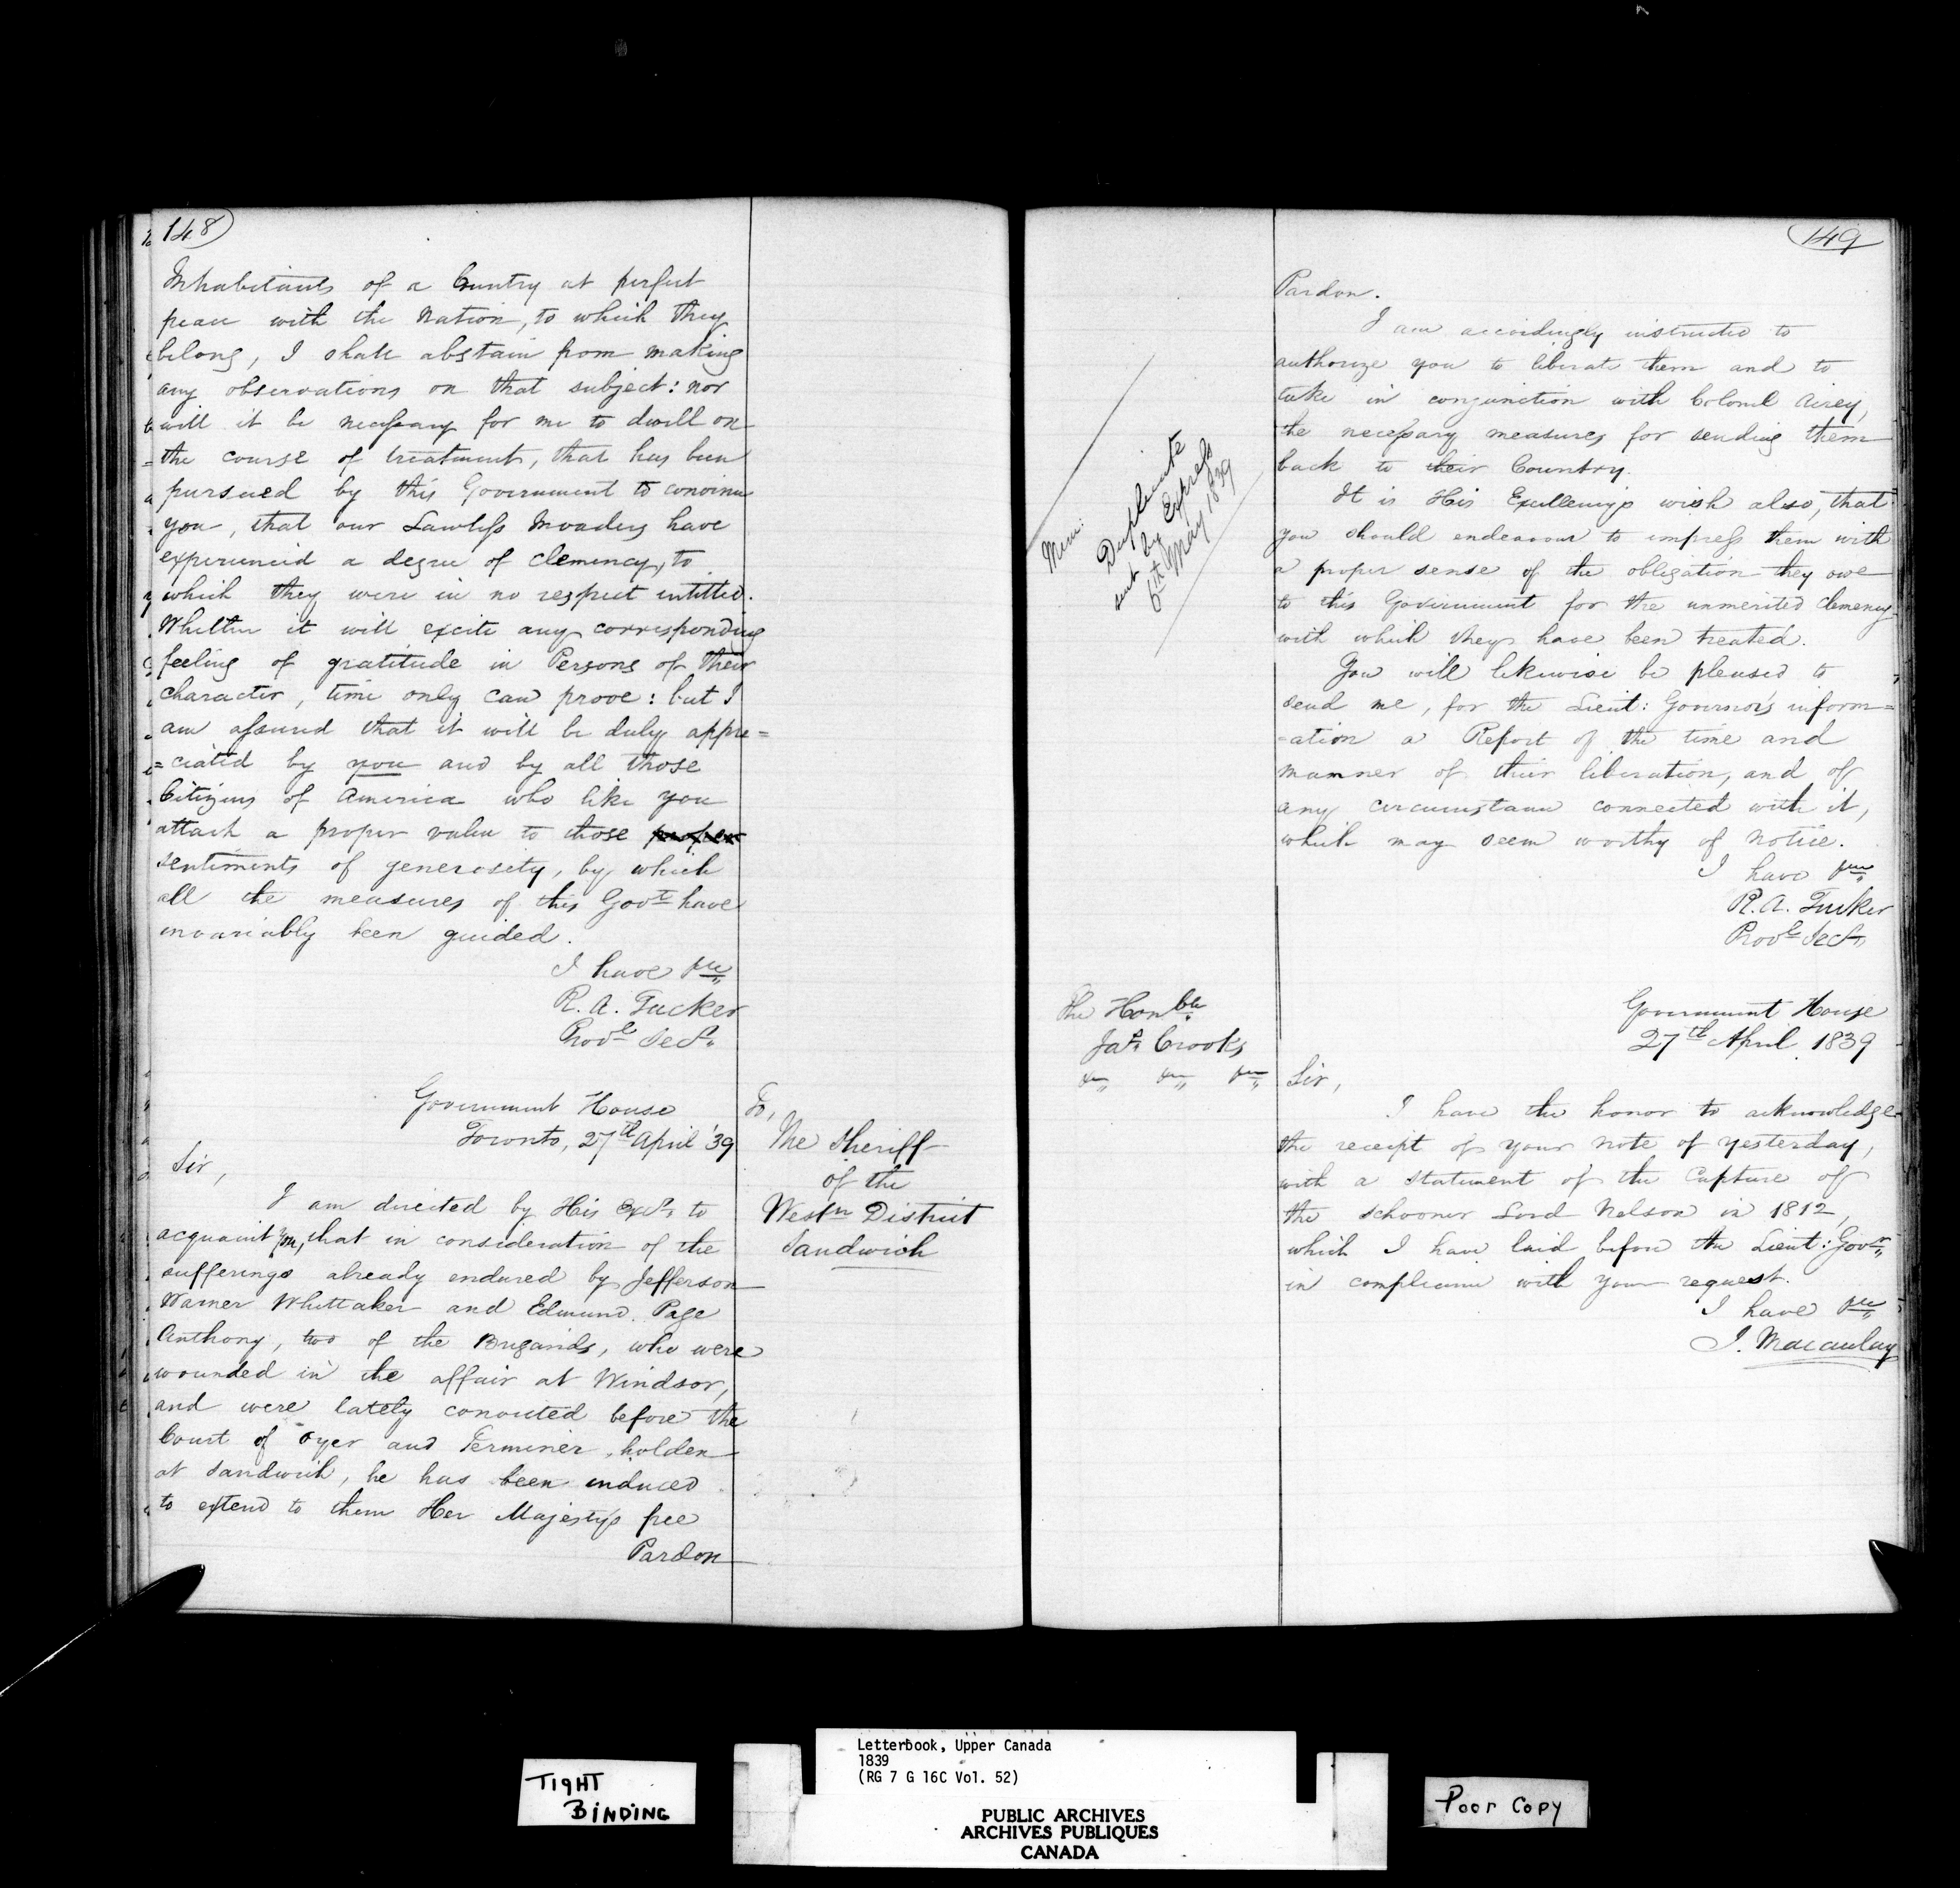 148
Inhabitants of a Country at perfect
peace with the Nation, to which they
belong, I shall abstain from making
any observations on that subject: nor
will it be necessary for me to dwell on
the course of treatment, that has been
pursued by this Government to convince
you, that our Lawless Invaders have
experienced a degree of clemency, to
which they were in no respect intitled.
Whether it will excite any corresponding
feeling of gratitude in Persons of their
character, time only can prove: but I
am assured that it will be duly appre=
=ciated by you and by all those
Citizens of America who like you
attach a proper value to those proper
sentiments of generosity, by which
all the measures of this Govt have
invariably been guided.
I have &c
R. A. Tucker
Provl Secy
Government House
Toronto, 27th April '39
To,
The Sheriff
of the
Westn District
Sandwich
Sir,
I am directed by His Excy to
acquaint you, that in consideration of the
sufferings already endured by Jefferson
Warner Whittaker and Edmund Page
Anthony, two of the Brigands, who were
wounded in the affair at Windsor,
and were lately convicted before the
Court of Oyer and Terminer, holden
at Sandwich, he has been induced
to extend to them Her Majestys free
Pardon
149
Pardon.
I am accordingly instructed to
authorize you to liberate them and to
take in conjunction with Colonel Airey,
the necessary measures for sending them
back to their Country.
Mem:
Duplicate
sent by Express
6th May 1839
It is His Excellency's wish also, that
you should endeavour to impress them with
a proper sense of the obligation they owe
to this Government for the unmerited clemency
with which they have been treated.
You will likewise be pleased to
send me, for the Lieut: Governor's inform=
=ation a Report of the time and
manner of their liberation, and of
any circumstance connected with it,
which may seem worthy of notice.
I have &c
R. A. Tucker
Provl Secy
The Honble
Jas Crooks
&c &c &c
Government House
27th April 1839
Sir,
I have the honor to acknowledge
the receipt of your note of yesterday,
with a statement of the Capture of
the schooner Lord Nelson in 1812,
which I have laid before the Lieut: Govr
in compliance with your request.
I have &c
J. Macaulay
TIGHT
BINDING
Letterbook, Upper Canada
1839
(RG 7 G 16C Vol. 52)
PUBLIC ARCHIVES
ARCHIVES PUBLIQUES
CANADA
Poor Copy